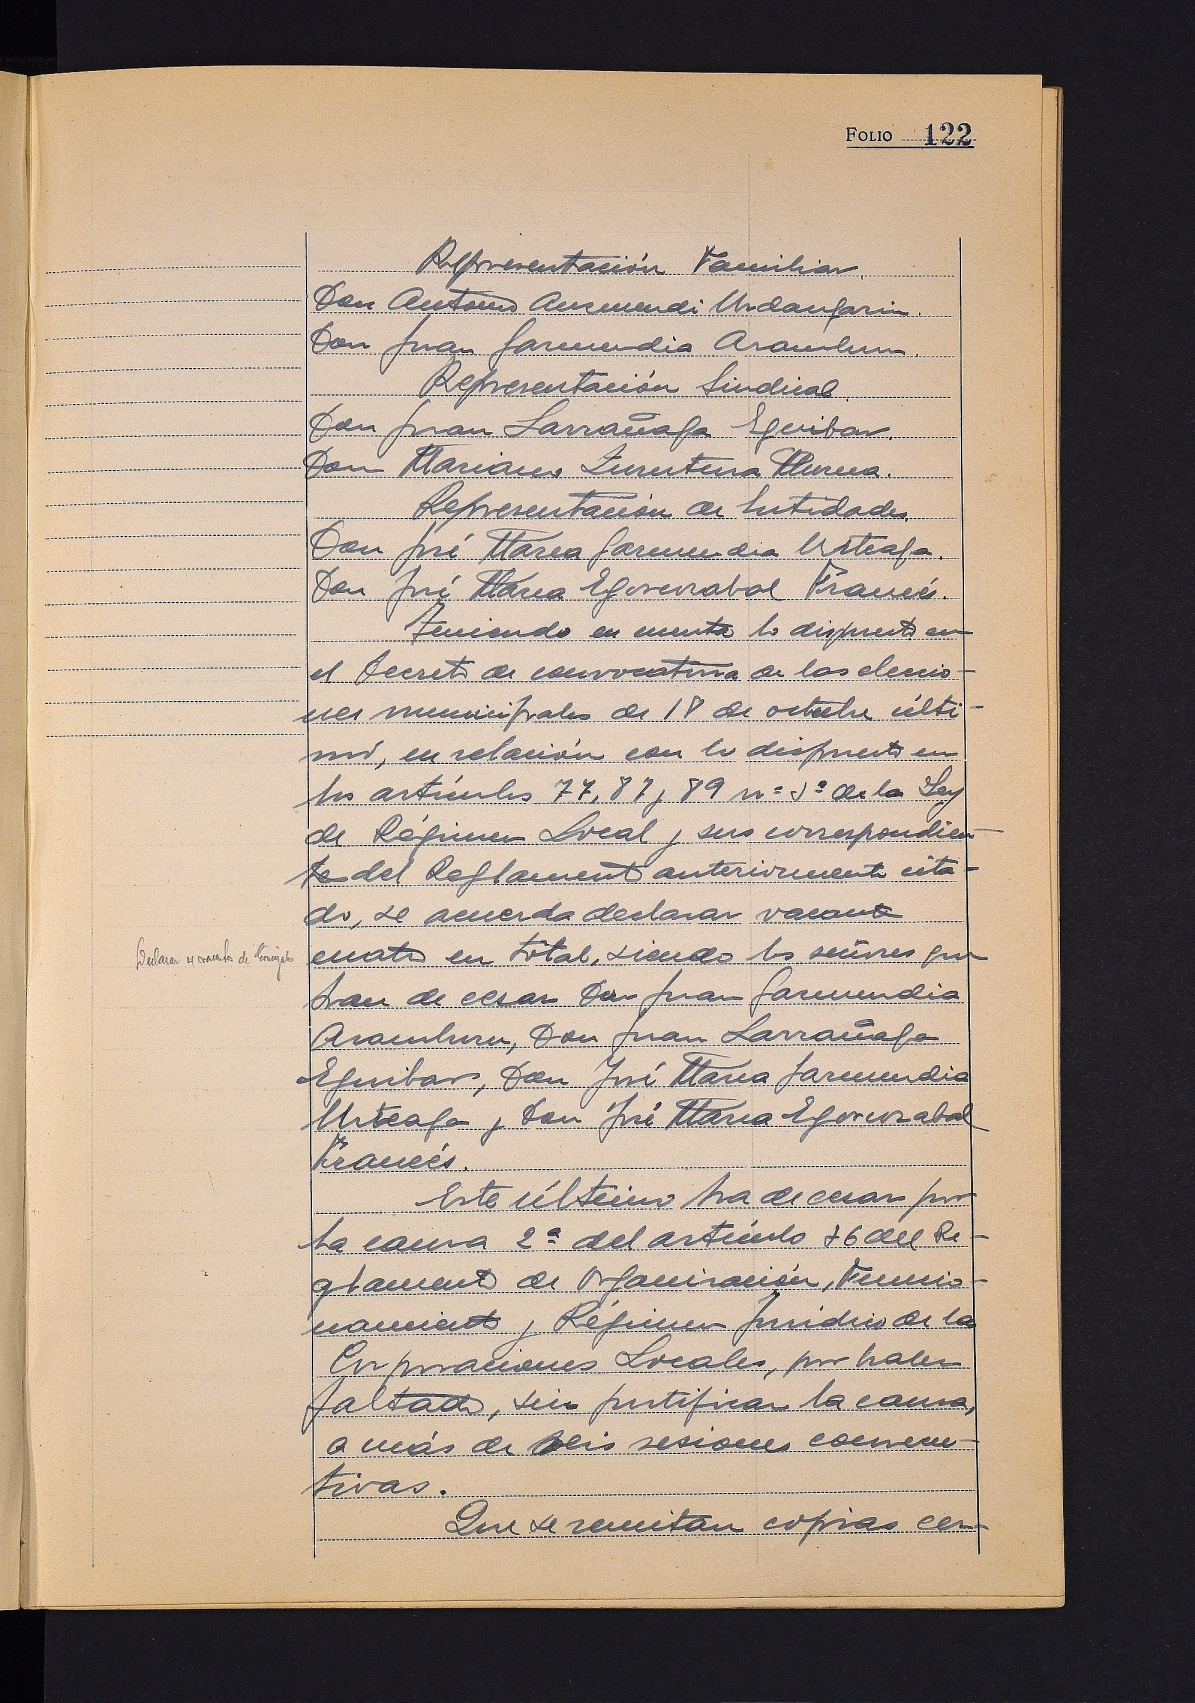 FOLIO 122
Representación Familiar.
Don Antonio Auzmendi Urdangarin.
Don Juan Garmendia Aramburu.
Representación Sindical.
Don Juan Larrañaga Eguibar.
Don Mariano Zurutuza
Representación de Entidades.
Don José Maria Garmendia Urteaga.
Don José Maria Egorcozabal Francés.
Teniendo en cuenta lo dispuesto en
el Decreto de convocatoria de las eleccio-
nes municipales de 18 de octubre últi-
mo, en relación con lo dispuesto en
los artículos 77, 87 y 89 de la Ley
de Régimen Local y sus correspondien-
te del Reglamento anteriormente cita-
do, se acuerda declarar vacante
Declarar 4 vacantes de Concejales
cuatro en total, siendo los señores que
han de cesar Don Juan Garmendia
Aramburu, Don Juan Larrañaga
Eguibar, Don José Maria Garmendia
Urteaga y Don José Maria Egorcozabal
Francés.
Este último ha de cesar por
la causa 2ª del artículo 76 del Re-
glamento de Organización, Funcio-
namiento y Régimen Jurídico de la
Corporaciones Locales, por haber
faltado, sin justificar la causa,
a más de seis sesiones consecu-
tivas.
Que se remitan copias cer-